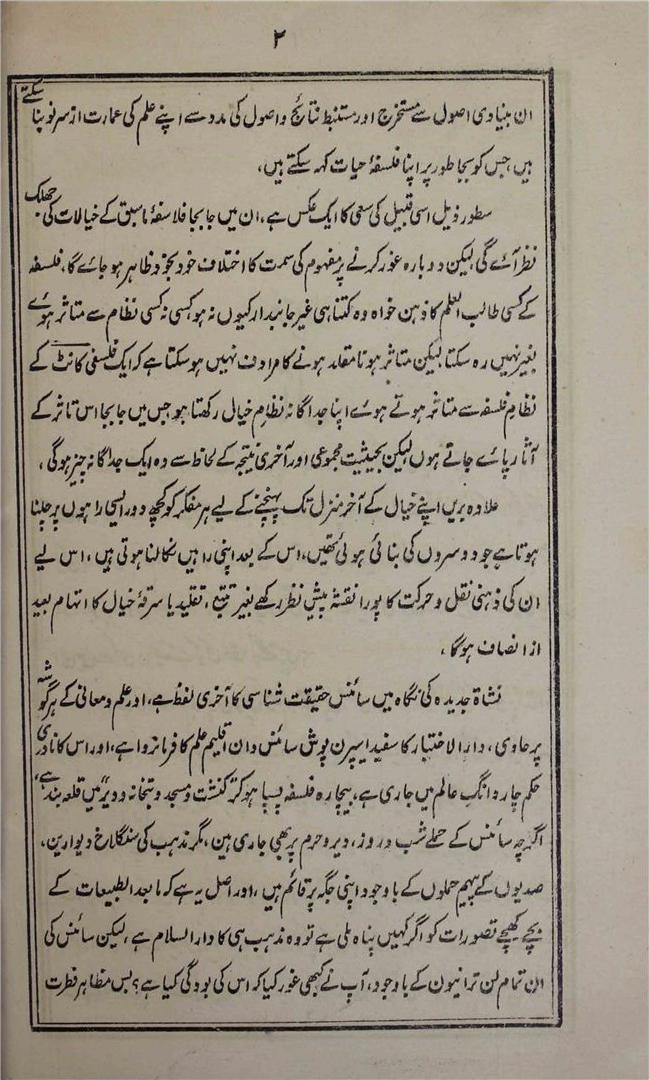 ۲
ان بنیادی اصول سے مستخرج اور مستنبط نتائج و اصول کی مدد سے اپنے علم کی عمارت از سر نو بنا سکتے
ہیں، جس کو بجا طور پر اپنا فلسفۂ حیات کہہ سکتے ہیں،
سطور ذیل اسی قبیل کی سعی کا ایک عکس ہے، ان میں جا بجا فلاسفۂ ماسبق کے خیالات کی جھلک
نظر آئے گی لیکن دوبارہ غور کرنے پر مفہوم کی سمت کا اختلاف خود بخود ظاہر ہو جائے گا، فلسفہ
کے کسی طالب العلم کا ذہن خواہ وہ کتنا ہی غیر جانبدار کیوں نہ ہو کسی نہ کسی نظام سے متاثر ہوئے
بغیر نہیں رہ سکتا لیکن متاثر ہونا مقلد ہونے کا مرادف نہیں ہو سکتا ہے کہ ایک فلسفی کانٹ کے
نظام فلسفہ سے متاثر ہوتے ہوئے اپنا جداگانہ نظام خیال رکھتا ہو جس میں جا بجا اس تاثر کے
آثار پائے جاتے ہوں لیکن بحیثیت مجموعی اور آخری نتیجہ کے لحاظ سے وہ ایک جداگانہ چیز ہوگی،
علاوہ بریں اپنے خیال کے آخر منزل تک پہنچنے کے لیے ہر مفکر کو کچھ دور ایسی راہوں پر چلنا
ہوتا ہے جو دوسروں کی بنائی ہوئی تھیں، اس کے بعد اپنی راہیں نکالنا ہوتی ہیں، اس لیے
ان کی ذہنی نقل و حرکت کا پورا نقشہ پیش نظر رکھے بغیر تتبع، تقلید یا سرقۂ خیال کا اتہام بعید
از انصاف ہوگا،
نشاۃ جدیدہ کی نگاہ میں سائنس حقیقت شناسی کا آخری لفظ ہے، اور علم و معانی کے ہر گوشہ
پر حاوی، دار الاختبار کا سفید ایپرن پوش سائنس دان اقلیم علم کا فرمانروا ہے، اور اس کا نادری
حکم چار دانگ عالم میں جاری ہے، بیچارہ فلسفہ پسپا ہو کر کنشت و مسجد و بتخانہ و دیر میں قلعہ بند ہے،
اگرچہ سائنس کے حملے شب و روز، دیر و حرم پر بھی جاری ہین، مگر مذہب کی سنگلاخ دیوارین،
صدیوں کے پیہم حملوں کے باوجود اپنی جگہ پر قائم ہیں، اور اصل یہ ہے کہ مابعد الطبیعات کے
بچے کھچے تصورات کو اگر کہیں پناہ ملی ہے تو وہ مذہب ہی کا دار السلام ہے، لیکن سائنس کی
ان تمام لن ترانیون کے باوجود، آپ نے کبھی غور کیا کہ اس کی بودگی کیا ہے؟ بس مظاہر فطرت